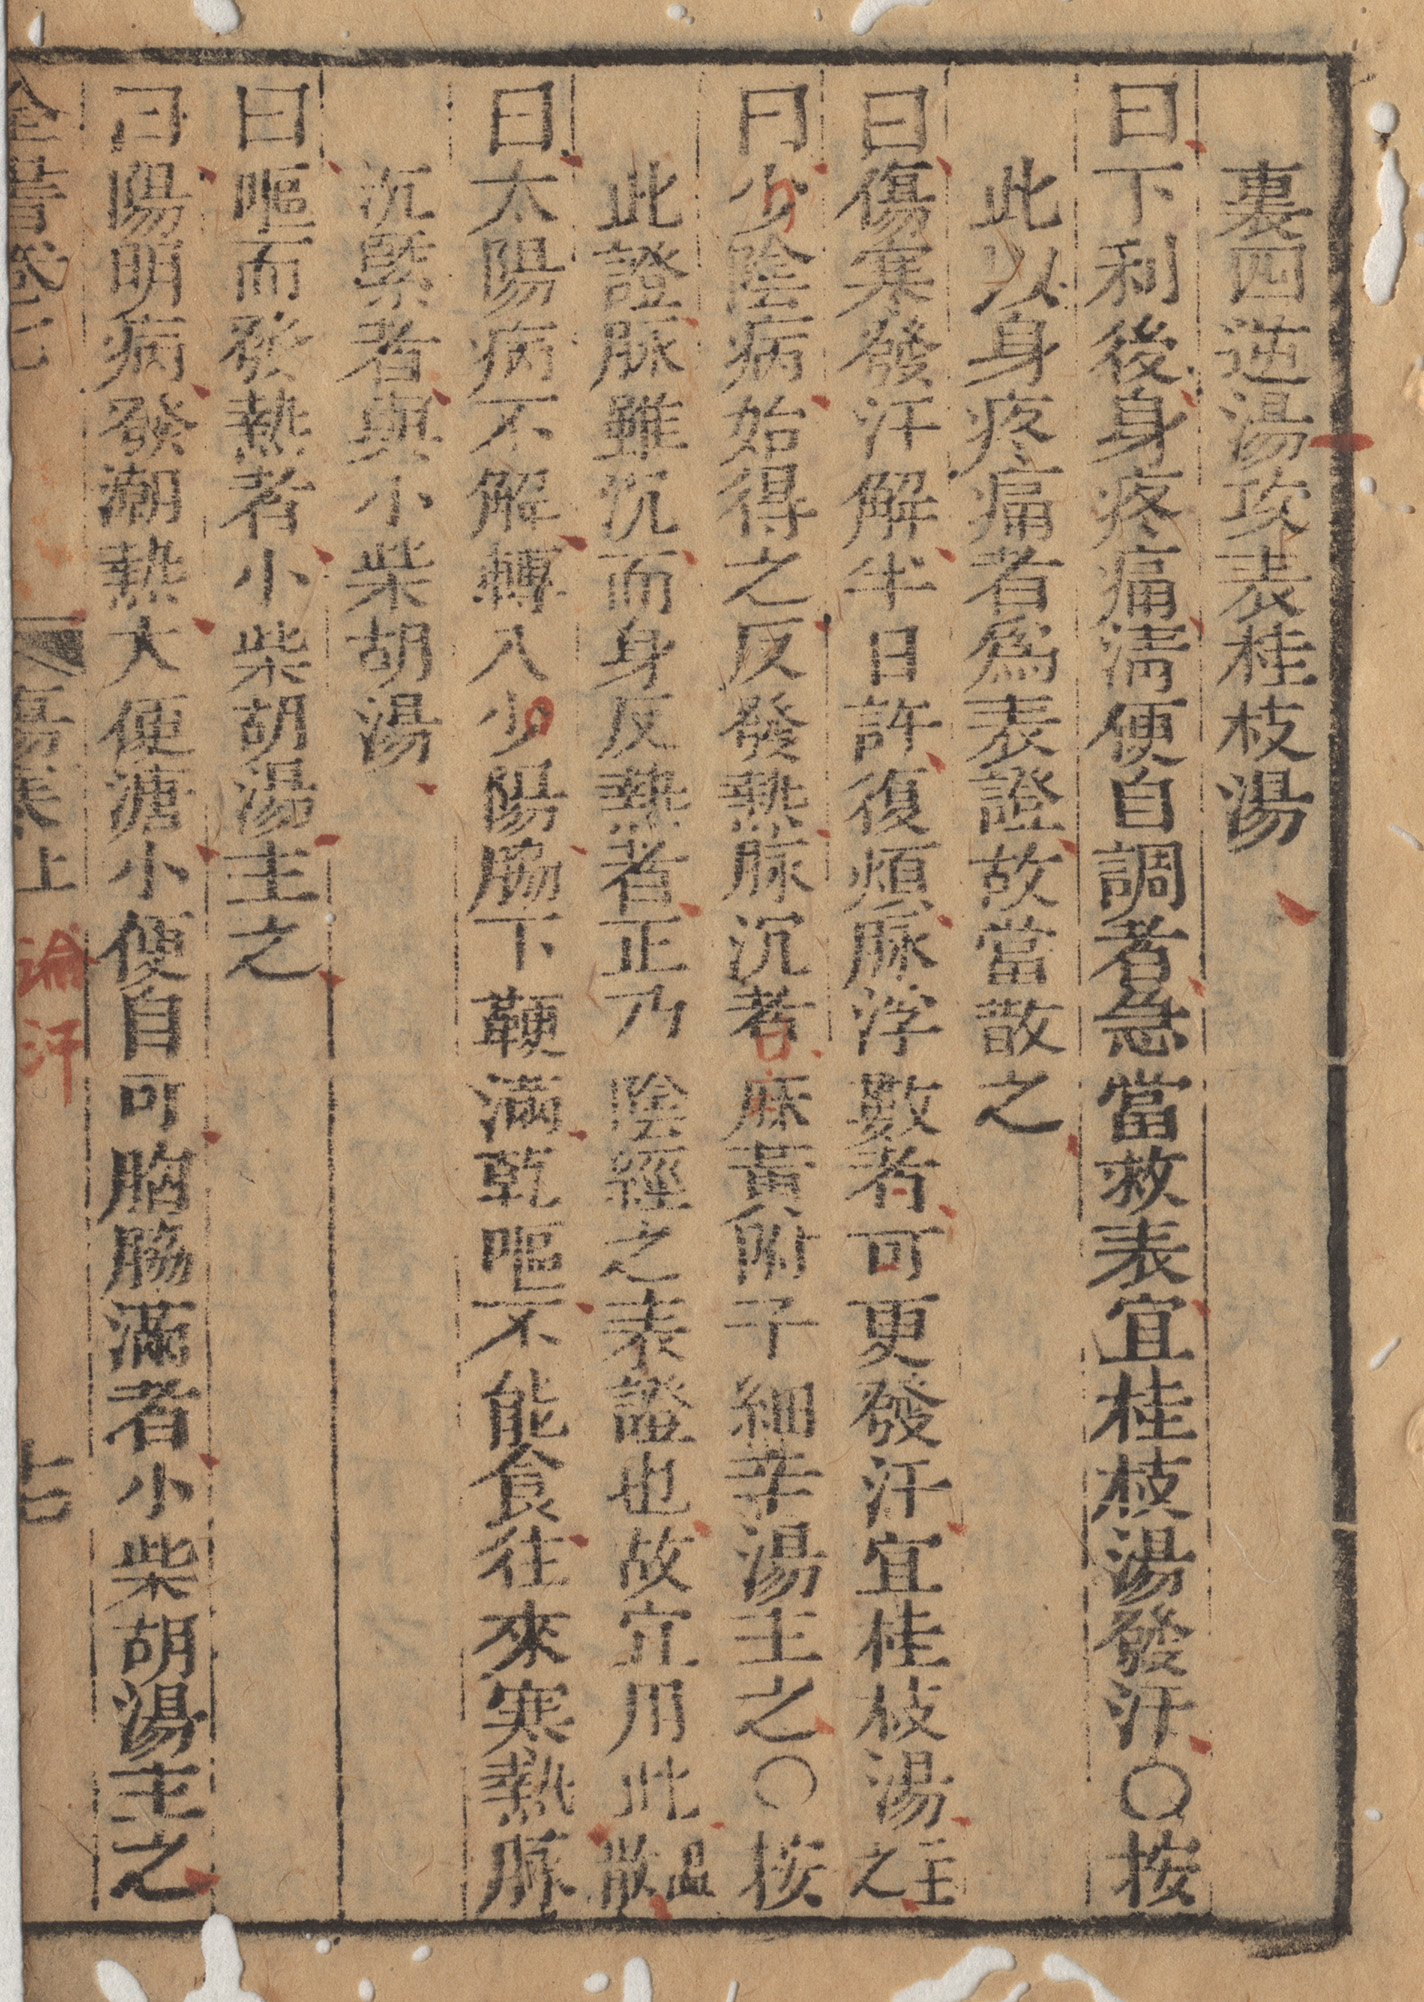 裏四逆湯攻表桂枝湯
曰下利後身疼痛淸便自調者急當救表宜桂枝湯發汗〇按
此以身疼痛者爲表證故當散之
曰傷寒發汗解半日許復煩脉浮數者可更發汗宜桂枝湯主之
曰少陰病始得之反發熱脉沉者麻黃附子細辛湯主之〇按
此證脈雖沉而身反熱者正乃陰經之表證也故宜用此溫散
曰太陽病不解轉入少陽脇下鞕滿乾嘔不能食往來寒熱脉
沉緊者與小柴胡湯
曰嘔而發熱者小柴胡湯主之
曰陽明病發潮熱大便溏小便自可胸脇滿者小柴胡湯主之
全書卷七 傷寒上 論汗 七